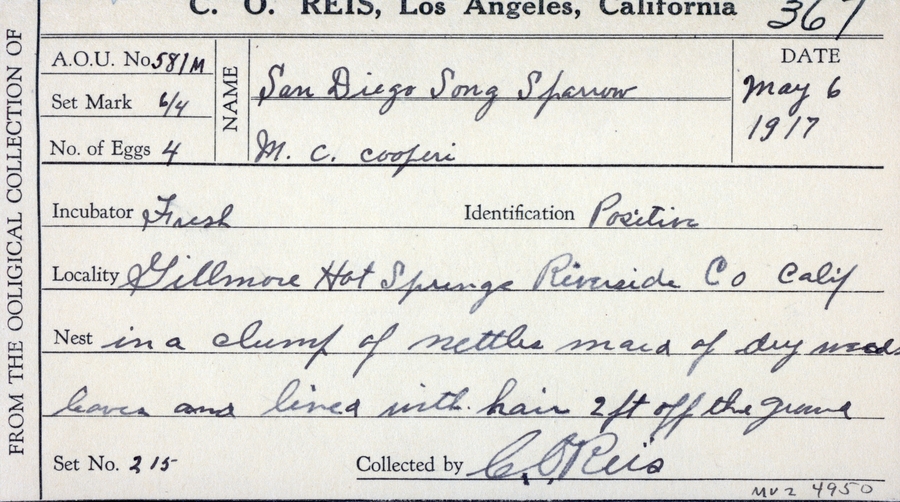 C. O. REIS, Los Angeles, California 367
FROM THE OOLIGICAL COLLECTION OF
A.O.U. No. 581M
Set Mark 6/4
No. of Eggs 4
NAME
San Diego Song Sparrow
M. C. cooperi
DATE
May 6
1917
Incubator Fresh Identification Positive
Locality Gillmore Hot Springs Riverside Co Calif
Nest in a clump of nettles maed of dry weeds
leaves and lined with hair 2 ft off the ground
Set No. 215 Collected by C. O. Reis
MVZ 4950